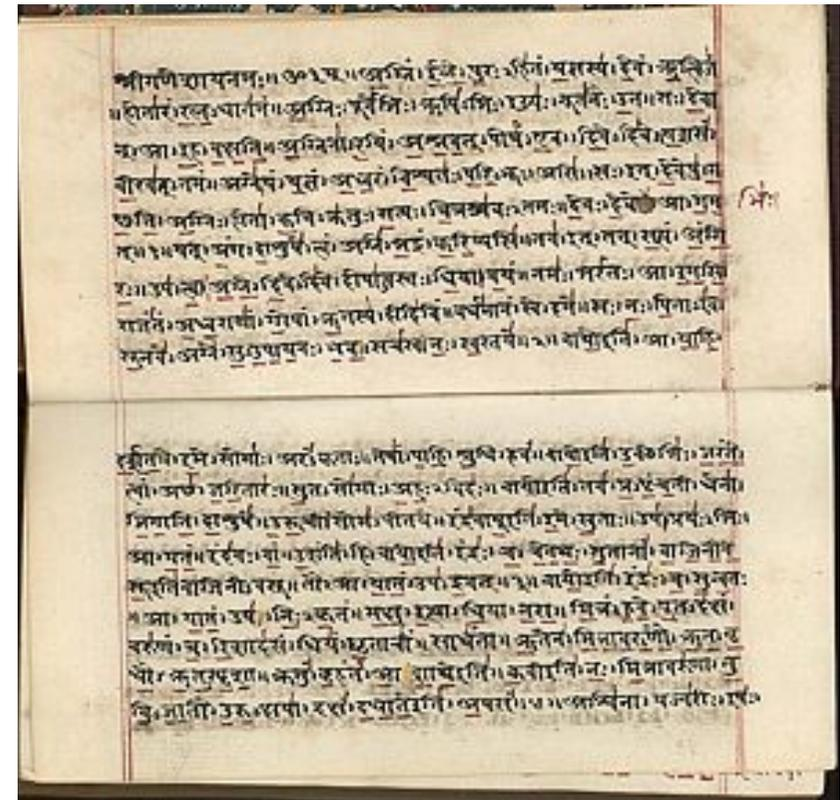 श्रीगणेशायनमः॥ॐ॥अग्निं। ईळे। पुरःऽहितं। यज्ञस्य। देवं। ऋत्विजं
॥होतारं। रत्नऽधातमं॥ अग्निः। पूर्वेभिः। ऋषिऽभिः। ईड्यः। नूतनैः। उत॥ सः। देवा
न्। आ। इह। वक्षति॥ अग्निना। रयिं। अश्नवत्। पोषं। एव। दिवेऽदिवे। यशसं
वीरवत्ऽतमं॥ अग्ने। यं। यज्ञं। अध्वरं। विश्वतः। परिऽभूः। असि। सः। इत्। देवेषु। ग
च्छति॥ अग्निः। होता। कविऽक्रतुः। सत्यः। चित्रश्रवःऽतमः। देवः। देवे आ। गम
भिः।
त्॥१॥ यत्। अंग। दाशुषे। त्वं। अग्ने। भद्रं। करिष्यसि। तव। इत्। तत्। सत्यं। अंगि
रः॥ उप। त्वा। अग्ने। दिवेऽदिवे। दोषाऽवस्तः। धिया। वयं। नमः। भरंतः। आ। इमसि
राजंतं। अध्वराणां। गोपां। ऋतस्य। दीदिविं॥ वर्धमानं। स्वे। दमे॥ सः। नः। पिताऽइव
सूनवे। अग्ने। सुऽउपायनः। भव॥ सचस्व। नः। स्वस्तये॥२॥ वायो इति। आ। याहि
दर्शत। इमे। सोमाः। अरंऽकृताः॥ तेषां। पाहि। श्रुधि। हवं॥ वायो इति। उक्थेभिः। जरंते
त्वां। अच्छ। जरितारः॥ सुतऽसोमाः। अहःऽविदः॥ वायो इति। तव। प्रऽपृंचती। धेना
जिगाति। दाशुषे॥ उरूची। सोमऽपीतये॥ इंद्रवायू इति। इमे। सुताः॥ उप। प्रयःऽभिः
आ। गतं॥ इंदवः। वां। उशंति। हि॥ वायो इति। इंद्रः। च। चेतथः। सुतानां। वाजिनीव
सू इति वाजिनीवसू॥ तौ। आ। यातं। उप। द्रवत्॥३॥ वायो इति। इंद्रः। च। सुन्वतः
॥आ। यातं। उप। निःऽकृतं॥ मक्षु। इत्था। धिया। नरा॥ मित्रं। हुवे। पूतऽदक्षं
वरुणं। च। रिशादसं॥ धियं। घृताचीं॥ साधंता॥ ऋतेन। मित्रावरुणौ। ऋतऽवृ
धौ। ऋतऽस्पृशा॥ क्रतुं। बृहंतं। आशाथे इति॥ कवी इति। नः। मित्रावरुणा। तु
विऽजातौ। उरुऽक्षया॥ दक्षं। दधाते इति। अपसं॥४॥ अश्विना। यज्वरीः। इषः